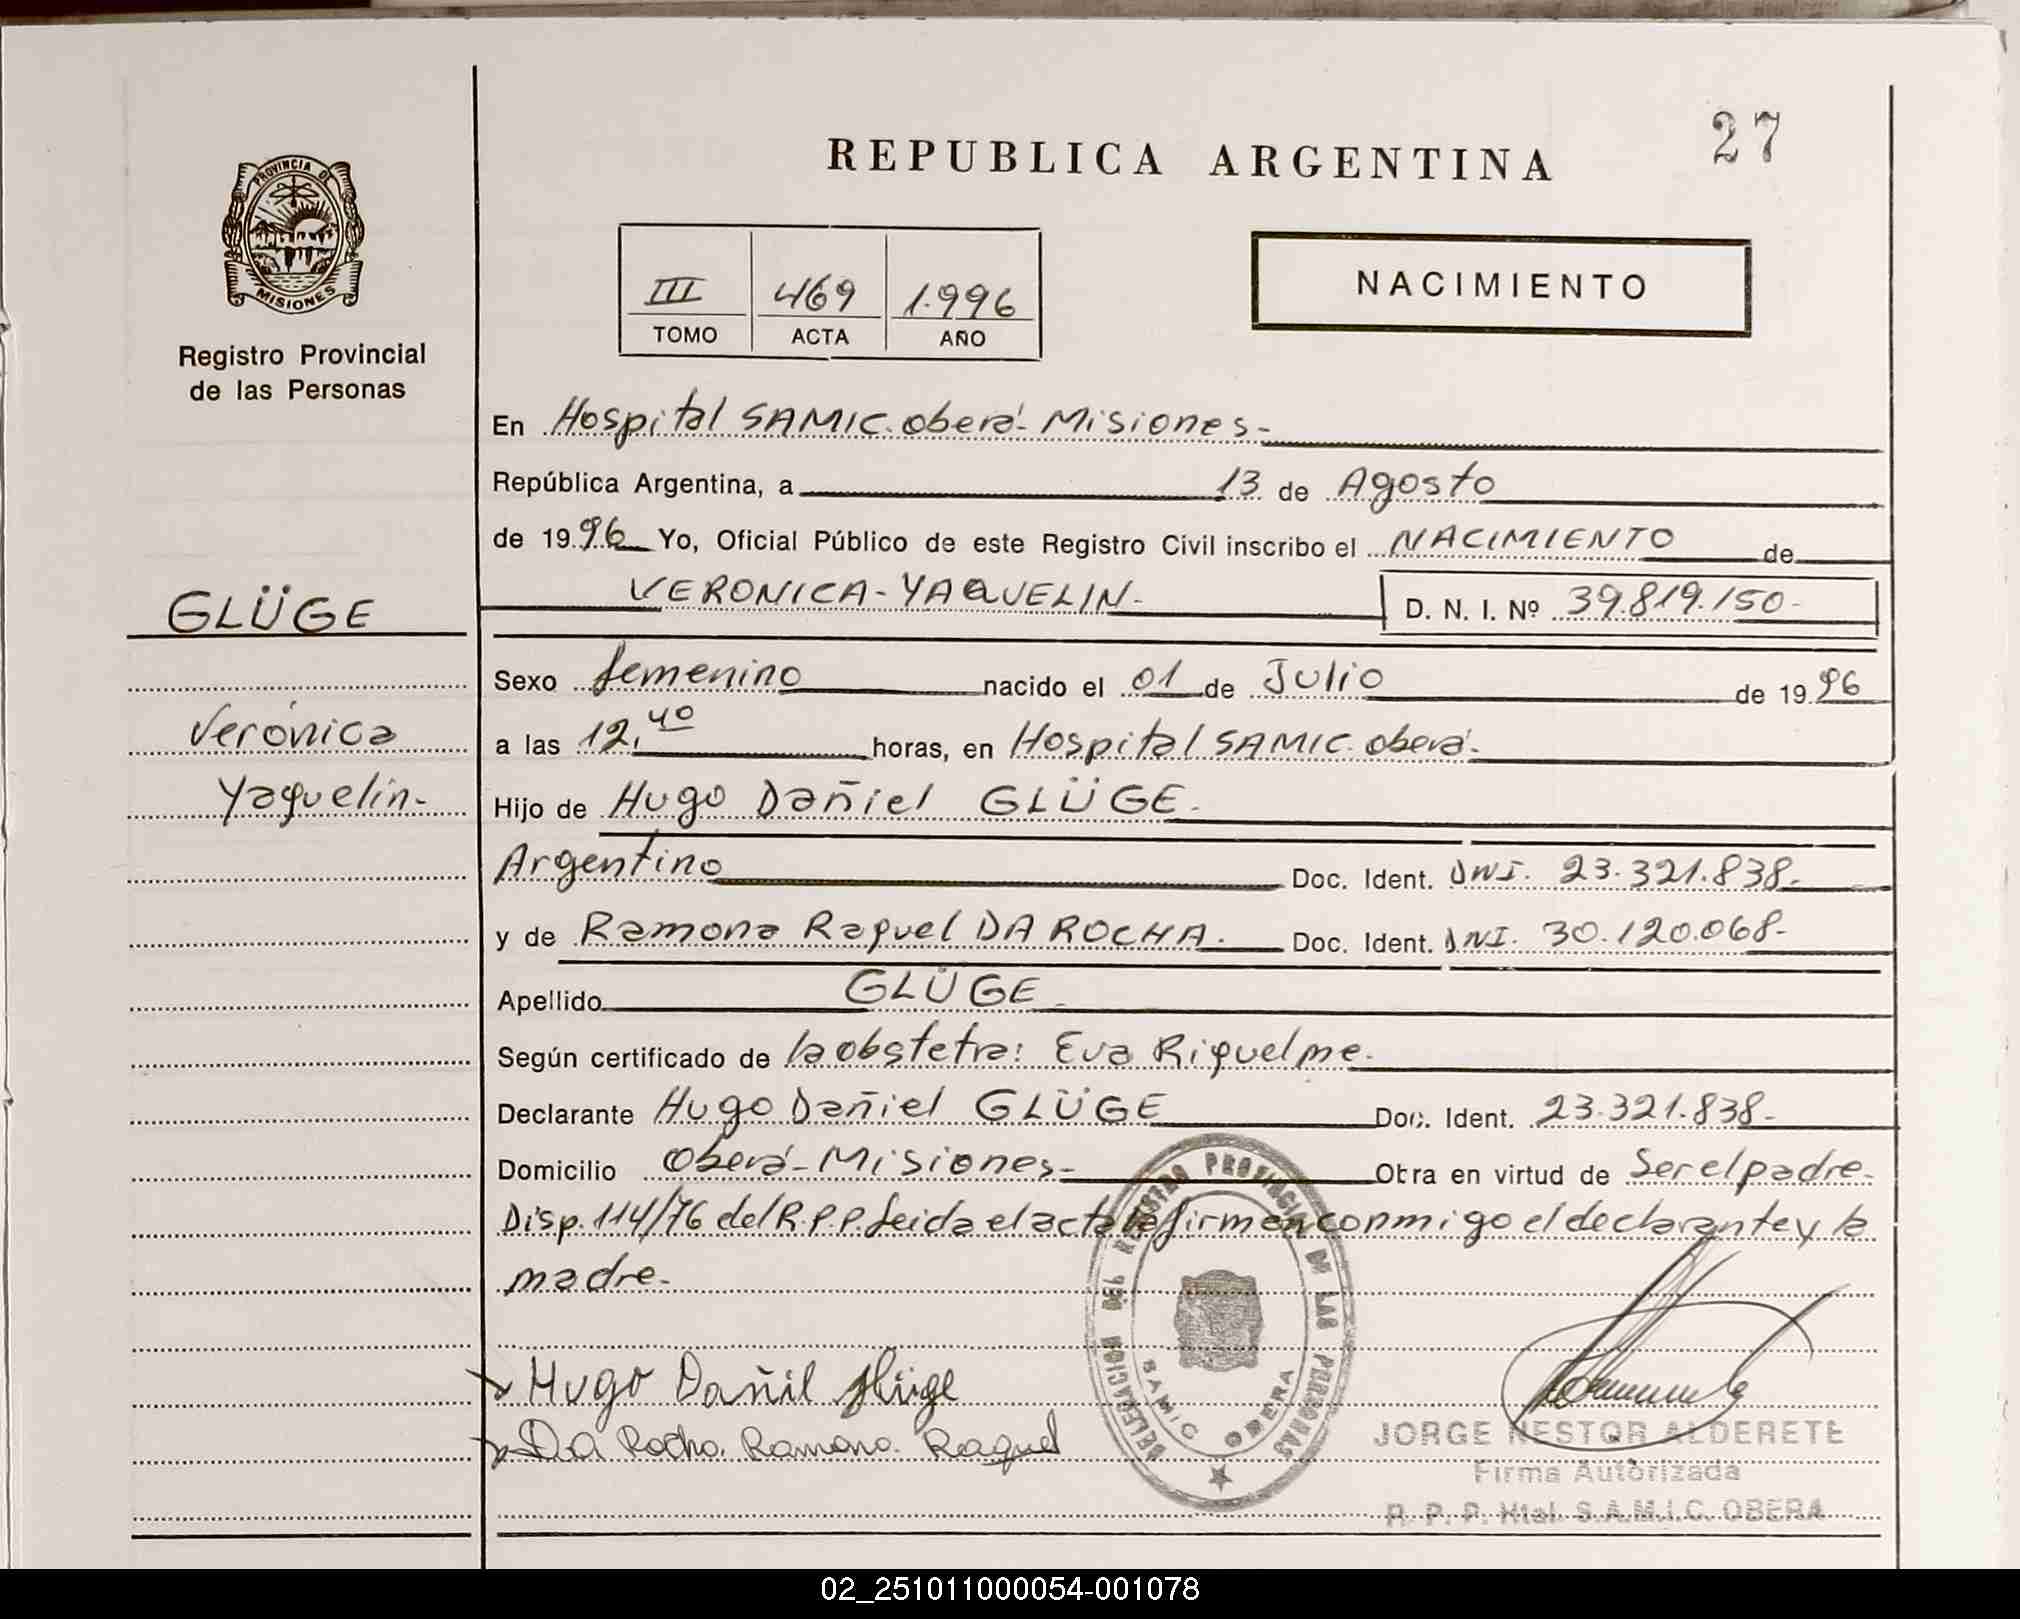 27
REPUBLICA ARGENTINA
PROVINCIA DE
MISIONES
Registro Provincial
de las Personas
III 469 1.996
TOMO ACTA AÑO
NACIMIENTO
En Hospital SAMIC. oberá- Misiones-
República Argentina, a 13 de Agosto
de 1996 Yo, Oficial Público de este Registro Civil inscribo el NACIMIENTO de
VERONICA-YAQUELIN- D. N. I. Nº 39.819.150-
GLÜGE
Verónica
Yaquelin-
Sexo femenino nacido el 01 de Julio de 1996
a las 12,40 horas, en Hospital SAMIC. oberá-
Hijo de Hugo Dañiel GLÜGE.
Argentino Doc. Ident. DNI. 23.321.838-
y de Ramona Raquel DA ROCHA. Doc. Ident. DNI. 30.120.068-
Apellido GLÜGE
Según certificado de la obstetra: Eva Riquelme.
Declarante Hugo Dañiel GLÜGE Doc. Ident. 23.321.838-
Domicilio oberá-Misiones- Obra en virtud de Ser el padre-
Disp. 114/76 del R.P.P. leida el acta la firmen conmigo el declarante y la
madre-
Hugo Dañil Glüge
Da Rocha. Ramona. Raquel
DELEGACION DEL REGISTRO PROVINCIAL DE LAS PERSONAS
SAMIC OBERA
JORGE NESTOR ALDERETE
Firma Autorizada
R. P. P. Htal. S.A.M.I.C. OBERA
02_251011000054-001078